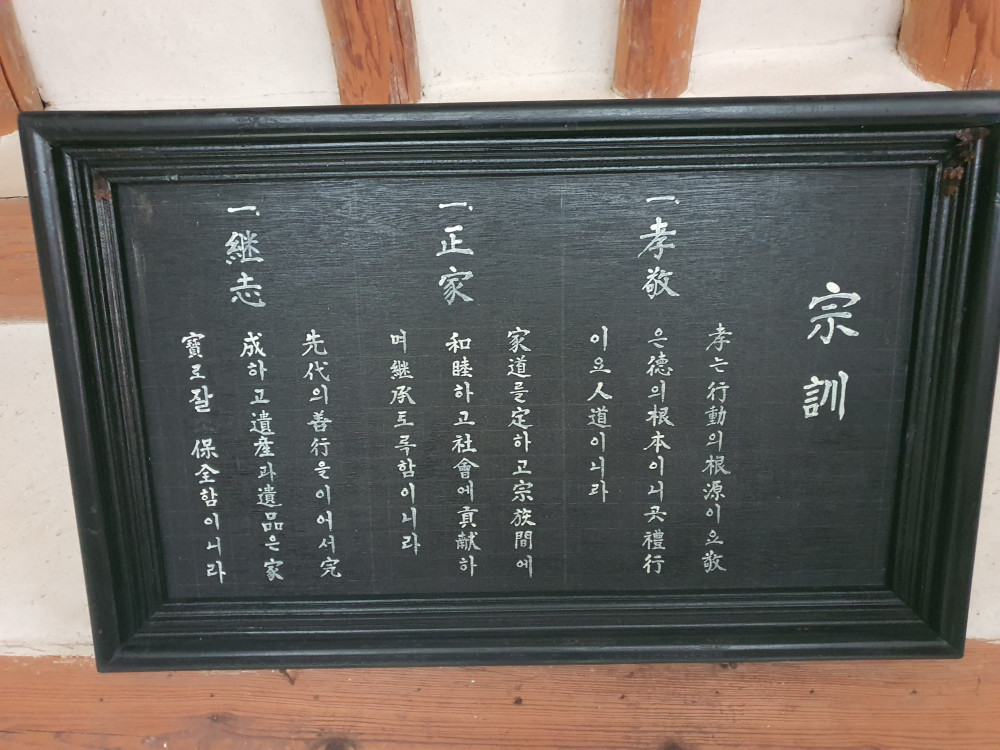 宗訓
一. 孝敬
孝는行動의根源이요敬
은德의根本이니곳禮行
이요人道이니라
一. 正家
家道를定하고宗族間에
和睦하고社會에貢献하
며継承토록함이니라
一. 継志
先代의善行을이어서完
成하고遺産과遺品은家
寶로잘 保全함이니라